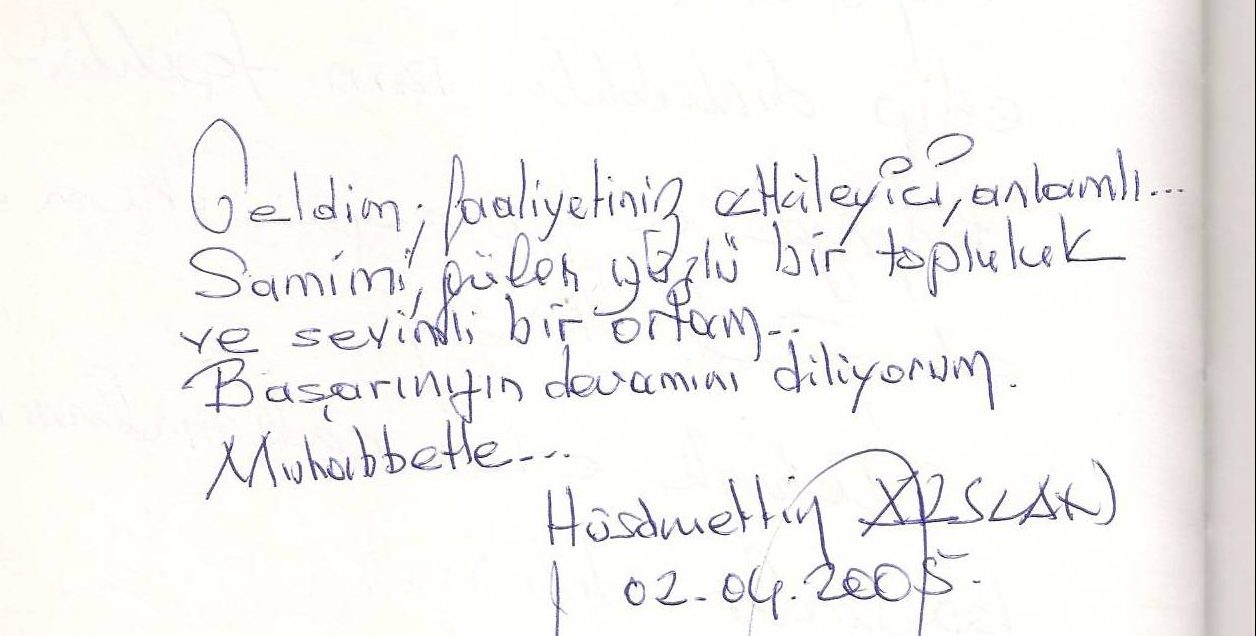 Geldim; faaliyetiniz etkileyici, anlamlı...
Samimi, güler yüzlü bir topluluk
ve sevimli bir ortam...
Başarınızın devamını diliyorum.
Muhabbetle...
Hüsamettin ARSLAN
02.04.2005.